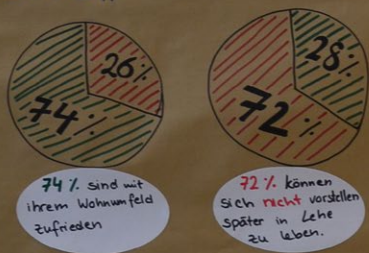 26%
74%
28%
72%
74% sind mit
ihrem Wohnumfeld
zufrieden
72% können
sich nicht vorstellen
später in Lehe
zu leben.